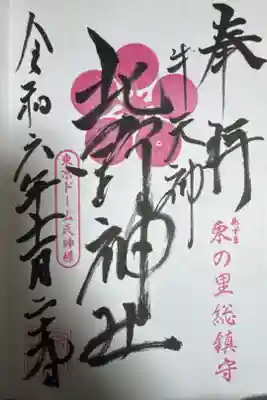 奉拝
あずま
東の里総鎮守
牛天神
北野神社
東京ドーム氏神様
令和六年十一月